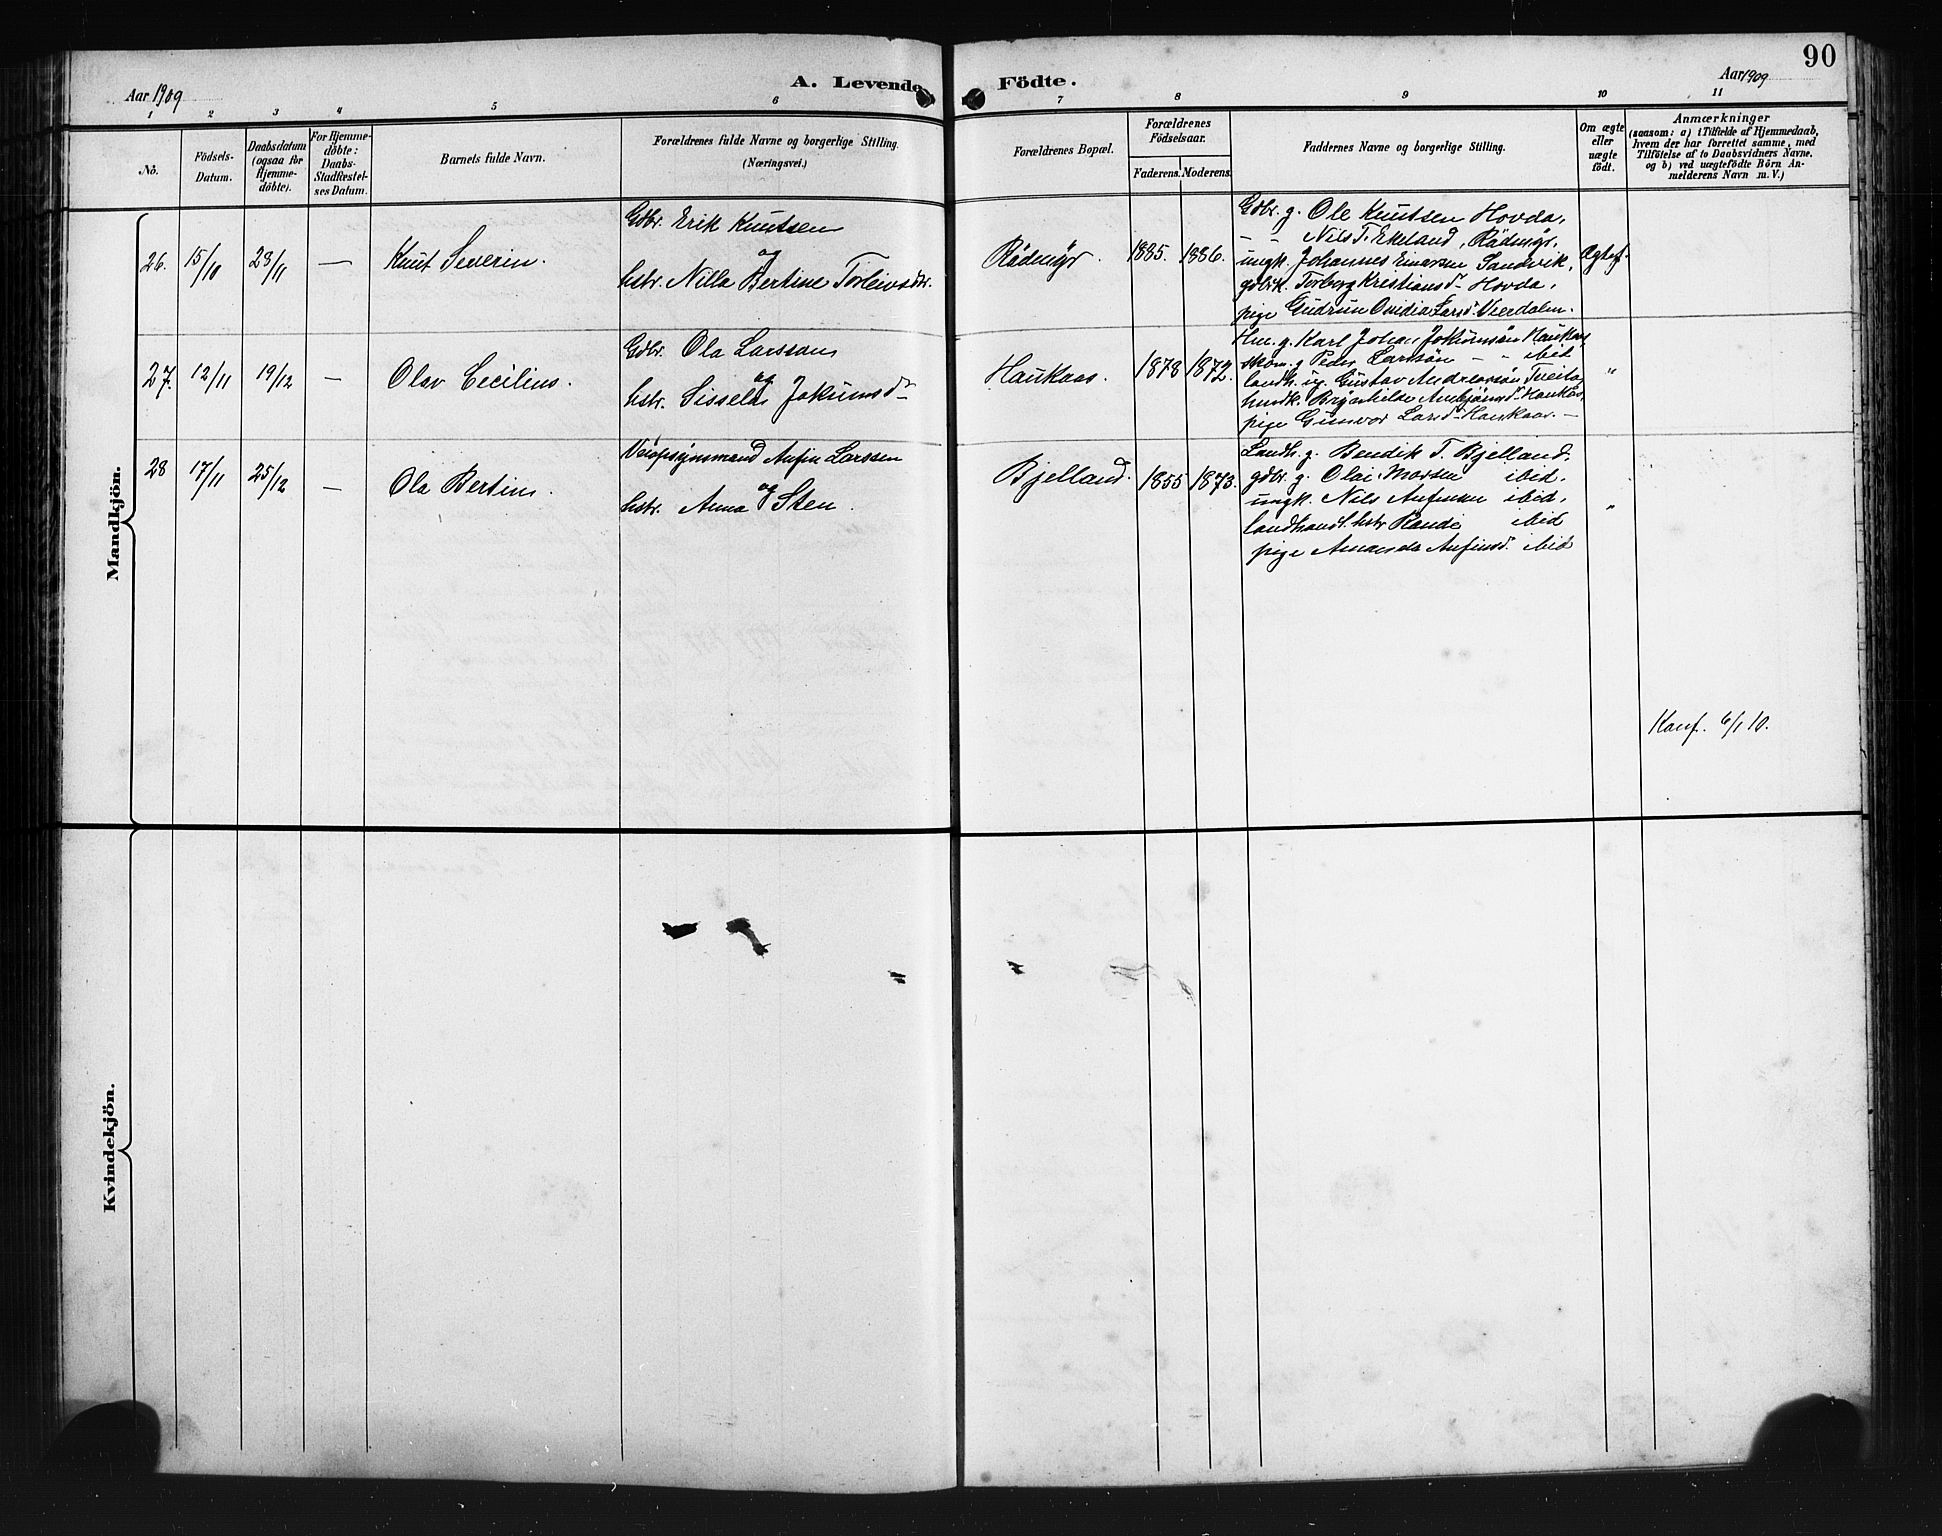 90
Aar 1909
A. Levende Födte.
Aar 1909
1 2 3 4 5 6 7 8 9 10 11
No.
Födsels-
Datum.
Daabsdatum
(ogsaa for
Hjemme-
döbte).
For Hjemme-
döbte:
Daabs-
Stadfæstel-
ses Datum.
Barnets fulde Navn.
Forældrenes fulde Navne og borgerlige Stilling.
(Næringsvei.)
Forældrenes Bopæl.
Forældrenes
Födselsaar.
Faderens. Moderens.
Faddernes Navne og borgerlige Stilling.
Om ægte
eller
uægte
födt.
Anmærkninger
(saasom: a) i Tilfælde af Hjemmedaab,
hvem der har forrettet samme, med
Tilföielse af to Daabsvidners Navne,
og b) ved uægtefödte Börn An-
melderens Navn m. V.)
Mandkjön.
26. 15/10 23/11 — Knut Severin.
Gdbr. Erik Knutsen
og
hstr. Nilla Bertine Torleivsdtr.
Rödmyr. 1885. 1886.
Gdbr. g. Ole Knutsen Hovda,
— — Nils T. Ekeland, Rödmyr,
ungk. Johannes Einarsen Sandvik,
gdbrk. Torborg Kristiansd- Hovda,
pige Gudrun Ovidia Larsd. Veerdalen.
Ægtef.
27. 12/11 19/12 — Olav Cecilius.
Gdbr. Ola Larssøn
og
hstr. Sissela Jokumsd-
Haukaas. 1878 1872.
Hm. g. Karl Johan Jokumsøn Haukaas,
skom. g Peder Larssøn — " ibid
landh. ug. Gustav Andreassøn Tveita,
husdk. Brynhilde Ambjörnsd- Haukaas,
pige Gunvor Larsd- Haukaas. —
"
28 17/11 25/12 — Ola Bertin.
Veiopsynsmand Anfin Larssen
og
hstr. Anna Sten.
Bjelland. 1855 1873.
Landh. g. Bendik T. Bjelland.
gdbr. g. Olai Monsen ibid.
ungk. Nils Anfinsen ibid.
landhandl. hstr Randi ibid
pige Amanda Anfinsd. ibid
"
Konf. 6/1 10.
Kvindekjön.